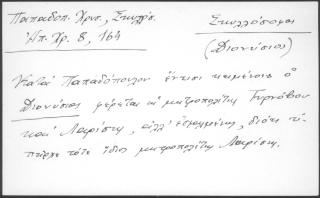 Παπαδοπ. Χρυσ., Σκυλλόσ.
Ἠπ. Χρ. 8, 164
Σκυλλόσοφος
(Διονύσιος)
Κατὰ Παπαδόπουλον ἔν τισι κειμένοις ὁ
Διονύσιος φέρεται ὡς μητροπολίτης Τυρνάβου
καὶ Λαρίσης, ἀλλ' ἐσφαλμένως, διότι ὑ-
πῆρχε τότε ἴδιος μητροπολίτης Λαρίσης.